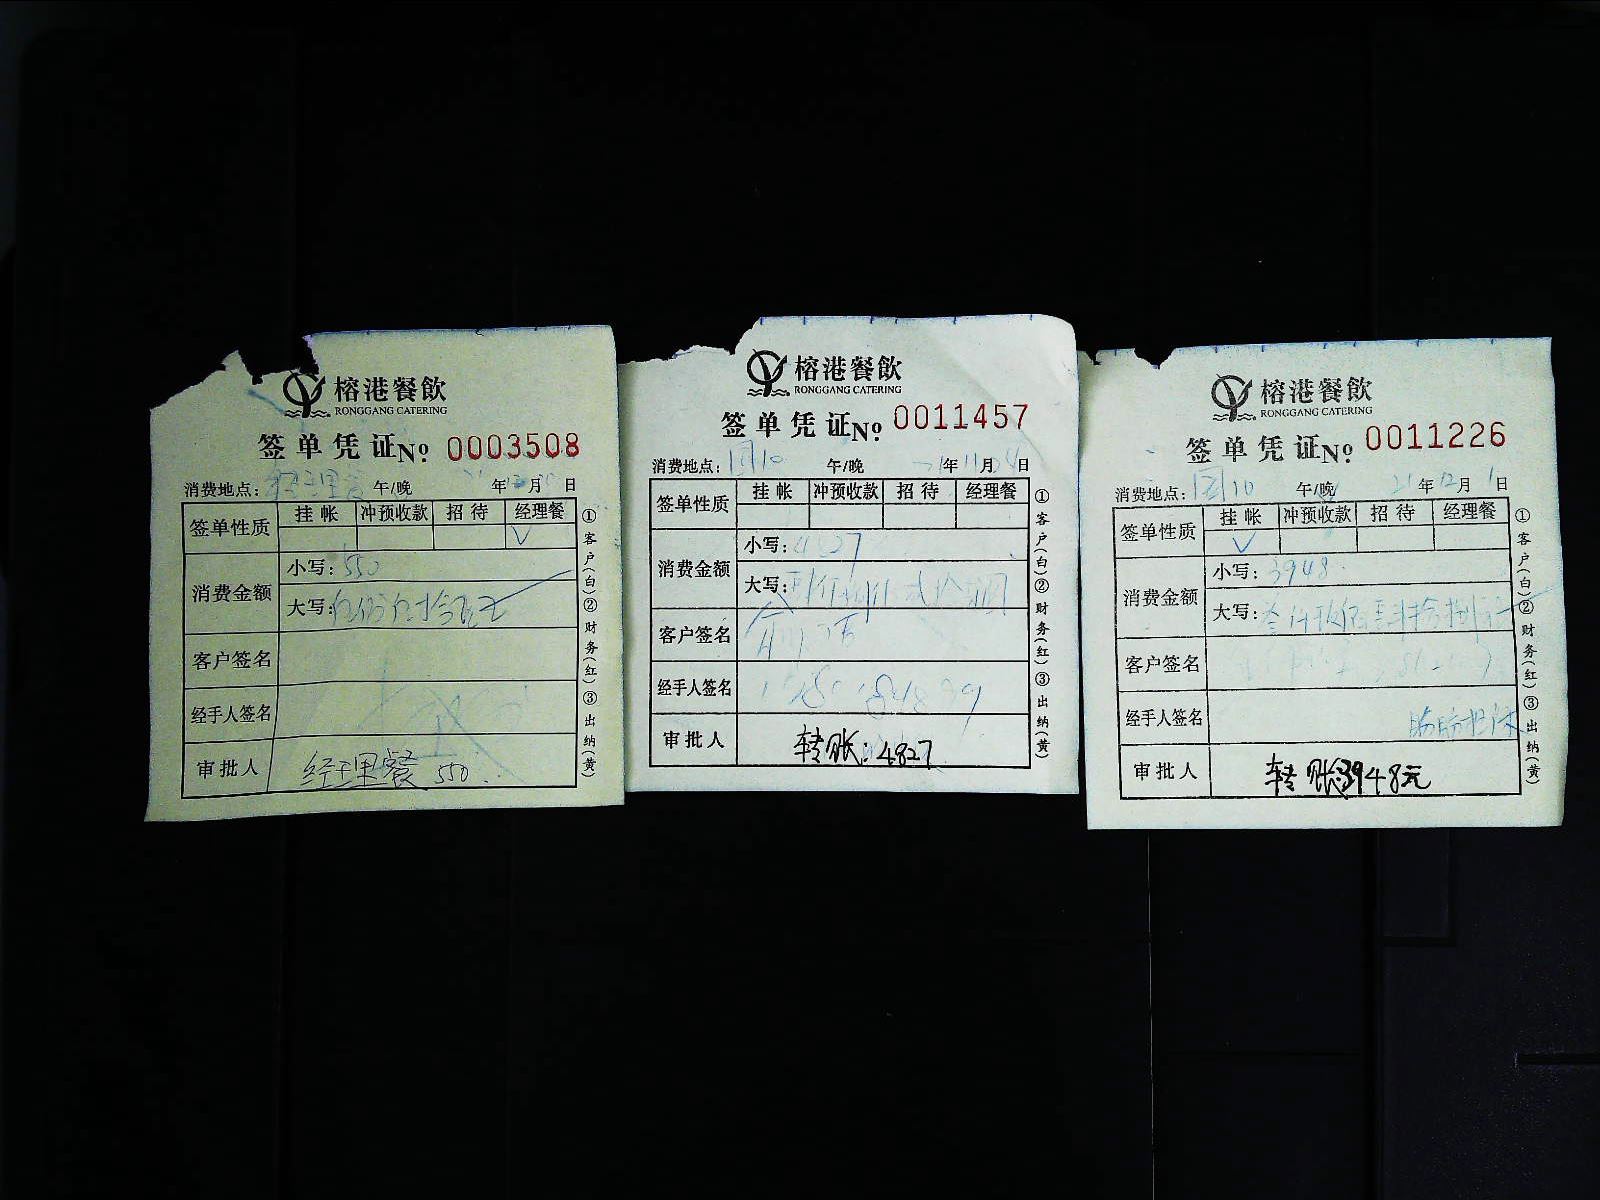 榕港餐飲
RONGGANG CATERING
签单凭证 No. 0003508
消费地点: 经理餐 午/晚 年 月 日
签单性质 挂帐 冲预收款 招待 经理餐
√
消费金额
小写: 550
大写: 伍佰伍拾元正
客户签名
经手人签名
审批人 经理餐 550
①客户(白)②财务(红)③出纳(黄)
榕港餐飲
RONGGANG CATERING
签单凭证 No. 0011457
消费地点: 午/晚 年 11月 04日
签单性质 挂帐 冲预收款 招待 经理餐
消费金额
小写: 4827
大写:
客户签名
经手人签名
审批人 转账:4827
①客户(白)②财务(红)③出纳(黄)
榕港餐飲
RONGGANG CATERING
签单凭证 No. 0011226
消费地点: 午/晚 21年 12月 1日
签单性质 挂帐 冲预收款 招待 经理餐
√
消费金额
小写: 3948
大写: 叁仟玖佰肆拾捌元
客户签名
经手人签名
审批人 转账3948元
①客户(白)②财务(红)③出纳(黄)